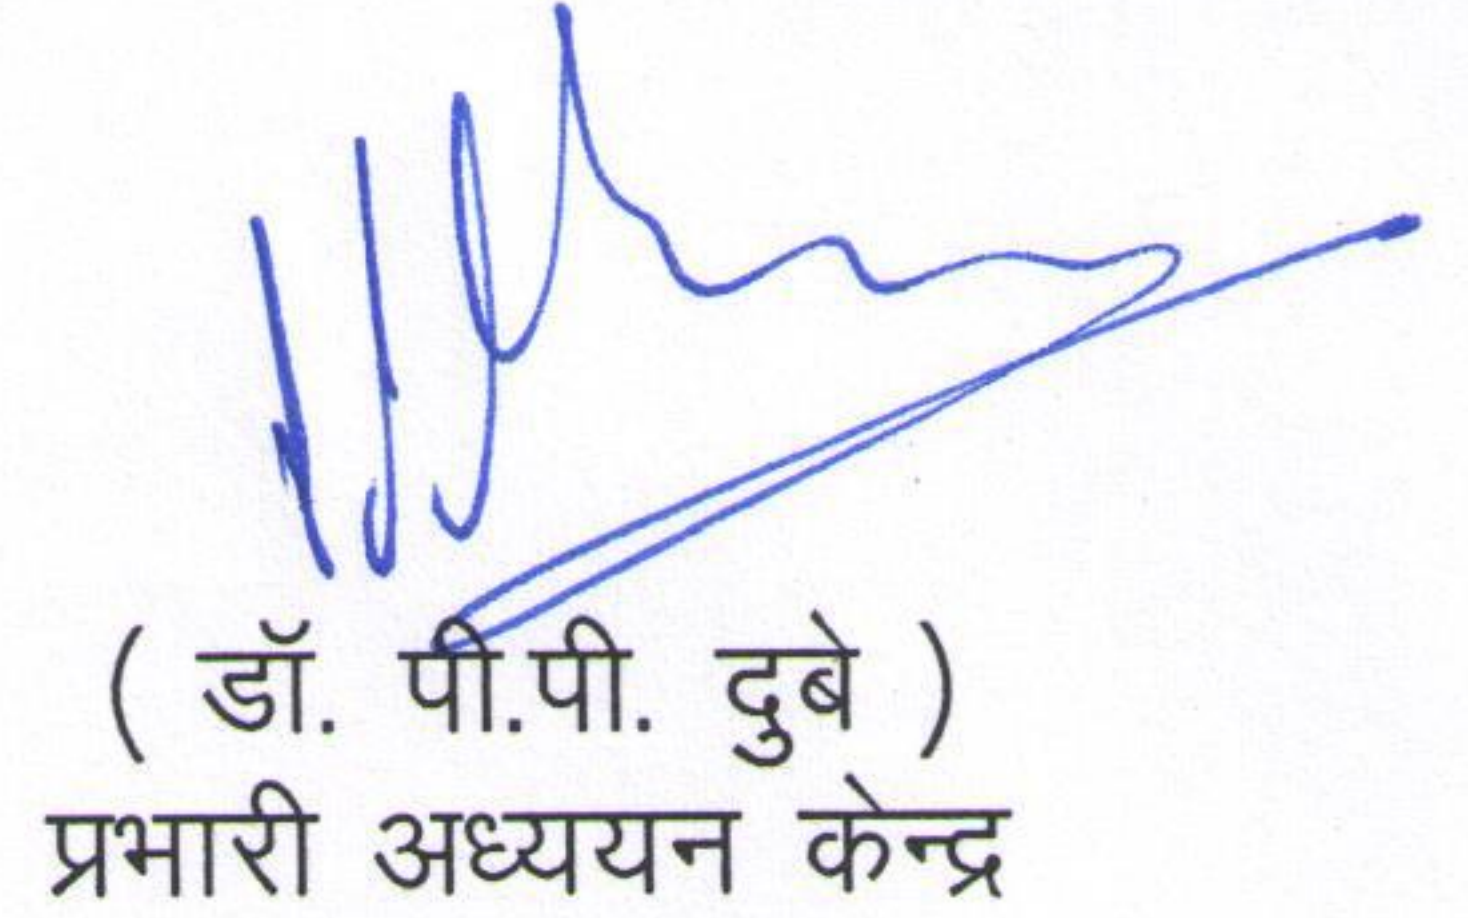 ( डॉ. पी.पी. दुबे )
प्रभारी अध्ययन केन्द्र